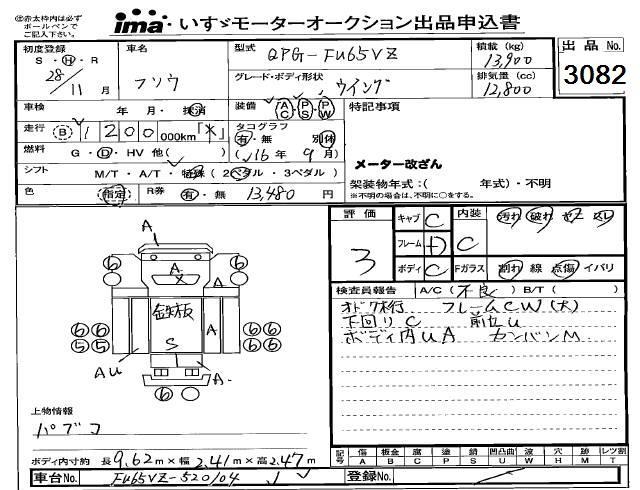 ㊟赤太枠内は必ず
ボールペンで
ご記入下さい。
ima いすゞモーターオークション出品申込書
初度登録 車名 型式 QPG-FU65VZ 積載 (kg) 13,900 出品 No.
S・H・R フソウ グレード・ボディ形状 排気量 (cc) 3082
28/11 月 ウイング 12,800
車検 年 月・抹消 装備 AC・PS・PW 特記事項
走行 B 1200 000km「*」 タコグラフ 有・無 別体
燃料 G・D・HV 他( ) (16年 9月) メーター改ざん
シフト M/T・A/T・特殊 (2ペダル・3ペダル) 架装物年式:( 年式)・不明
※不明の場合は、年式に○をする。
色 指定 R券 有・無 13,480 円
評価 キャブ C 内装 汚れ 破れ
3 フレーム D C
ボディ C Fガラス 割れ 線 点傷 イバリ
検査員報告 A/C(不良) B/T( )
フレームCW(大)
下回りC
ボディ内UA カンバンM
A
A
6 6
鉄板 A
6 6 6 6
5 5 S 6 6
AU A
6 6
上物情報
パブコ
ボディ内寸約 長 9.62m×幅 2.41m×高 2.47m
記号 傷A 板金B 腐C 塗P 錆S 凹凸曲U 波W 穴H 跡M レツ割T
車台No. FU65VZ-520104 登録No.